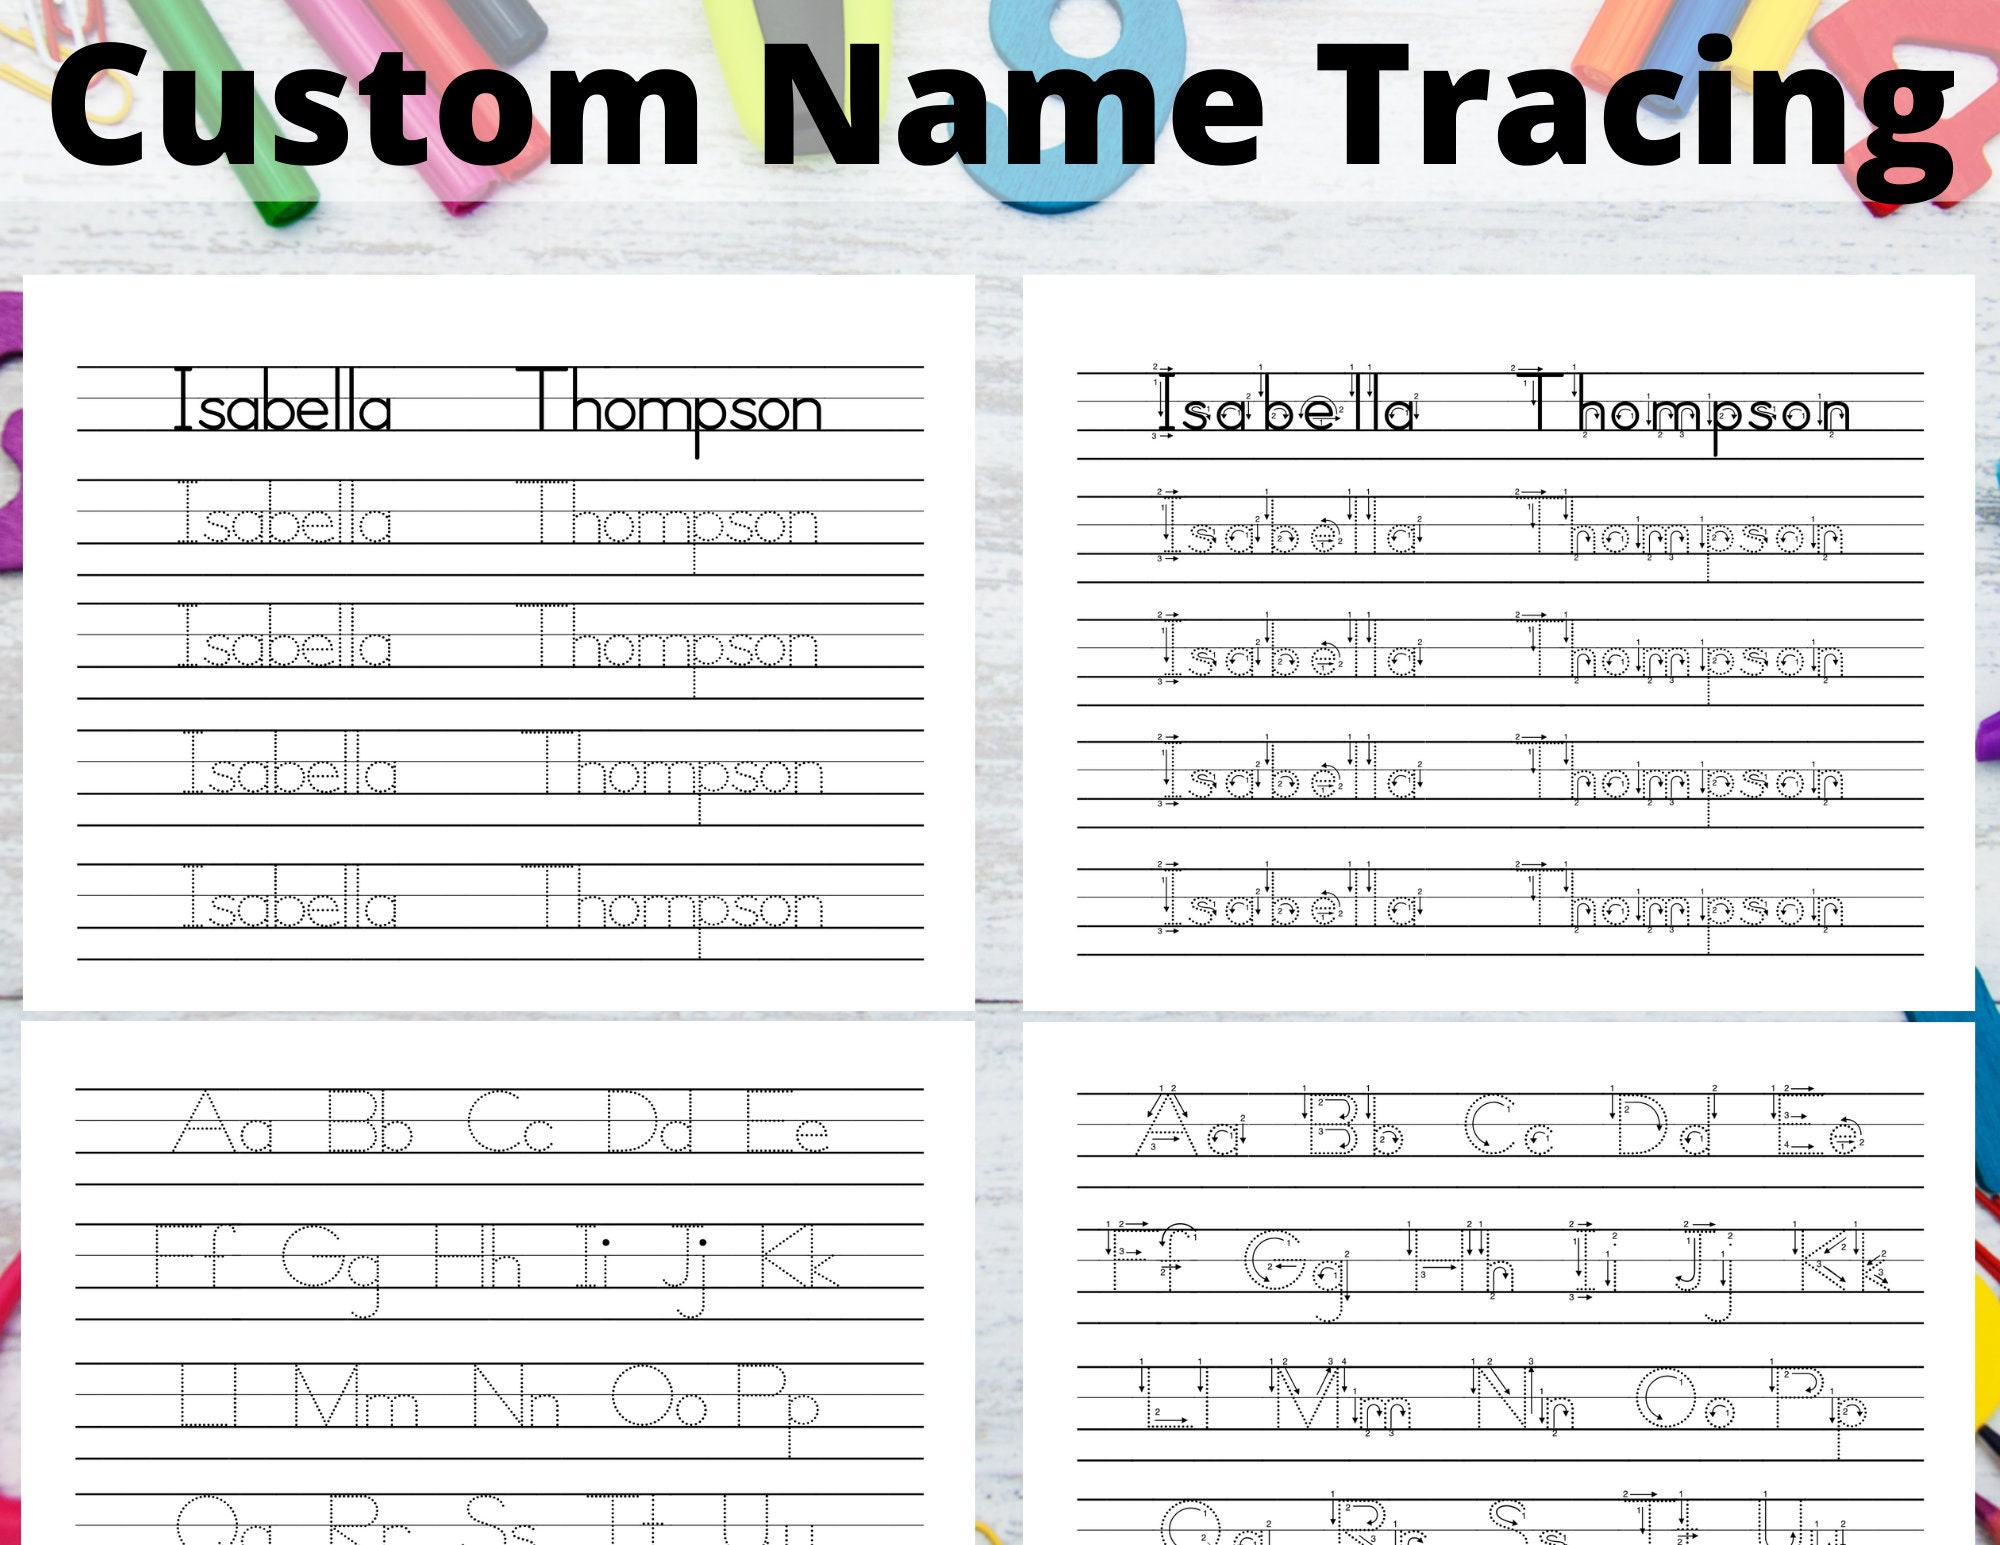 Custom Name Tracing
Isabella Thompson
Isabella Thompson
Isabella Thompson
Isabella Thompson
Isabella Thompson
Isabella Thompson
Isabella Thompson
Isabella Thompson
Isabella Thompson
Isabella Thompson
Aa Bb Cc Dd Ee
Ff Gg Hh Ii Jj Kk
Ll Mm Nn Oo Pp
Qq Rr Ss Tt Uu
Aa Bb Cc Dd Ee
Ff Gg Hh Ii Jj Kk
Ll Mm Nn Oo Pp
Qq Rr Ss Tt Uu